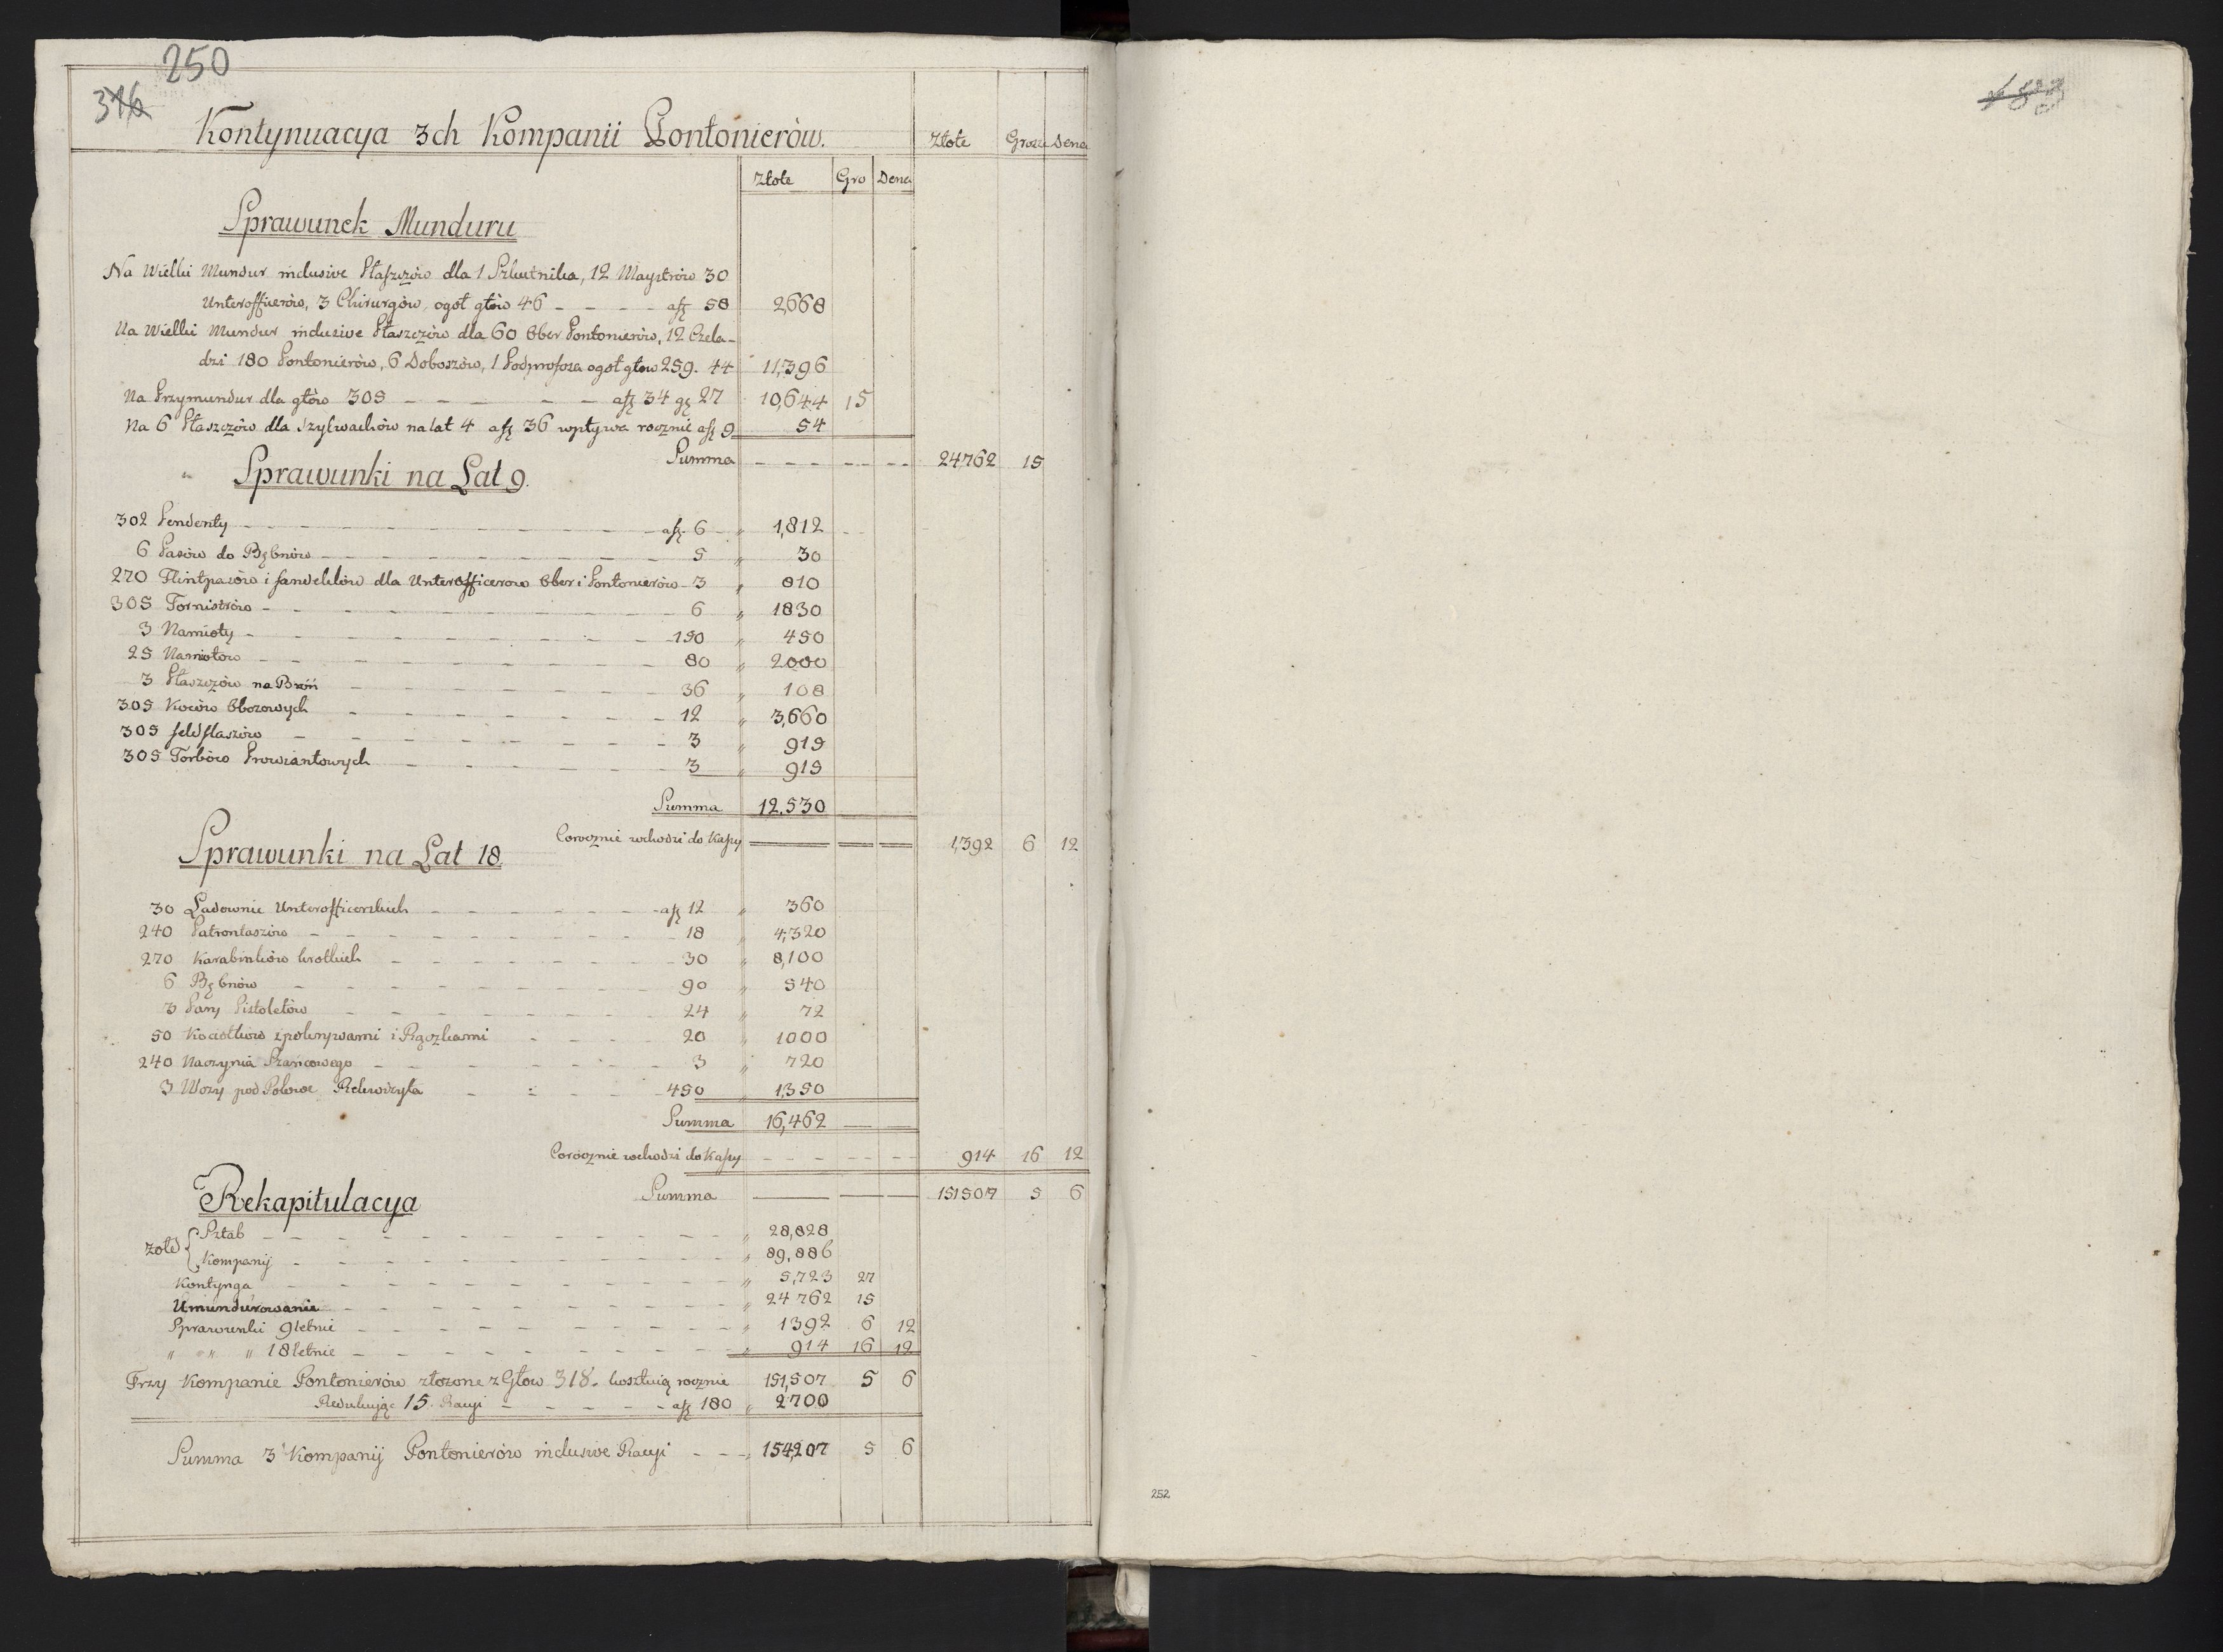 250
346
Kontynuacya 3ch Kompanii Pontonierów. Złote Grosze Dena
Złote Gro Dena
Sprawunek Munduru
Na Wielki Mundur inclusive Płaszczów dla 1 Szkutnika, 12 Maystrów 30
Unterofficerów, 3 Chirurgów, ogół głów 46 - - - - a fl 58 2,668
Na Wielki Mundur inclusive Płaszczów dla 60 Ober Pontonierów, 12 Czela-
dzi 180 Pontonierów, 6 Doboszów, 1 Podprofosa ogół głow 259. 44 11,396
Na Przymundur dla głów 305 - - - - - - a fl 34 gl 27 10,644 15
Na 6 Płaszczów dla Szylwachów na lat 4 a fl 36 wpływa rocznie a fl 9 54
Summa - - - - - - - 24762 15
Sprawunki na Lat 9.
302 Pendenty - - - - a fl. 6 " 1,812
6 Pasów do Bębnów - - - - 5 " 30
270 Flintpasów i fandeklów dla Unterofficerow Ober i Pontonierów - 3 " 810
305 Tornistrów - - - - 6 " 1830
3 Namioty - - - - 150 " 450
25 Namiotow - - - - 80 " 2000
3 Płaszczów na Broń - - - - 36 " 108
305 Koców Obozowych - - - - 12 " 3,660
305 feldflaszów - - - - 3 " 915
305 Torbów Prowiantowych - - - - 3 " 915
Summa 12,530
Corocznie wchodzi do Kassy 1,392 6 12
Sprawunki na Lat 18.
30 Ladownic Unterofficerskich - - - - a fl 12 " 360
240 Patrontaszów - - - - 18 " 4,320
270 Karabinków krotkich - - - - 30 " 8,100
6 Bębnów - - - - 90 " 540
3 Pary Pistoletów - - - - 24 " 72
50 Kociołków z pokrywami i Rączkami - - - - 20 " 1000
240 Naczynia Szańcowego - - - - 3 " 720
3 Wozy pod Polowe Rekwizyta - - - - 450 " 1,350
Summa 16,462
Corocznie wchodzi do Kassy - - - - - - - 914 16 12
Summa 151507 5 6
Rekapitulacya
Żołd { Sztab - - - - " 28,828
Kompanij - - - - " 89,886
Kontynga - - - - " 5,723 27
Umundurowanie - - - - " 24762 15
Sprawunki 9letnie - - - - " 1392 6 12
" " " 18letnie - - - - " 914 16 12
Trzy Kompanie Pontonierów złożone z Głow 318. kosztuią rocznie 151,507 5 6
Redukując 15. Racyi - - - - a fl 180 " 2700
Summa 3 Kompanij Pontonierów inclusive Racyi - - - " 154,207 5 6
252